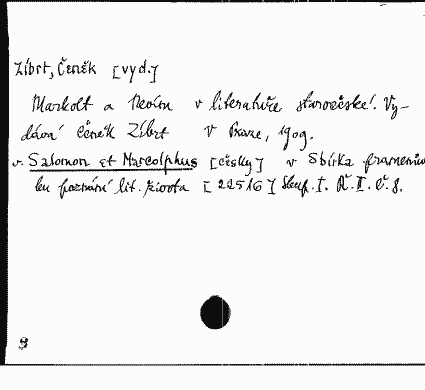 Zíbrt, Čeněk [vyd.]
Markolt a Nevím v literatuře staročeské. Vy-
dává Čeněk Zíbrt V Praze, 1909.
v. Salomon et Marcolphus [česky] v Sbírka pramenův
ku poznání lit. života [22516] Skup. I. Ř. II. č. 8.